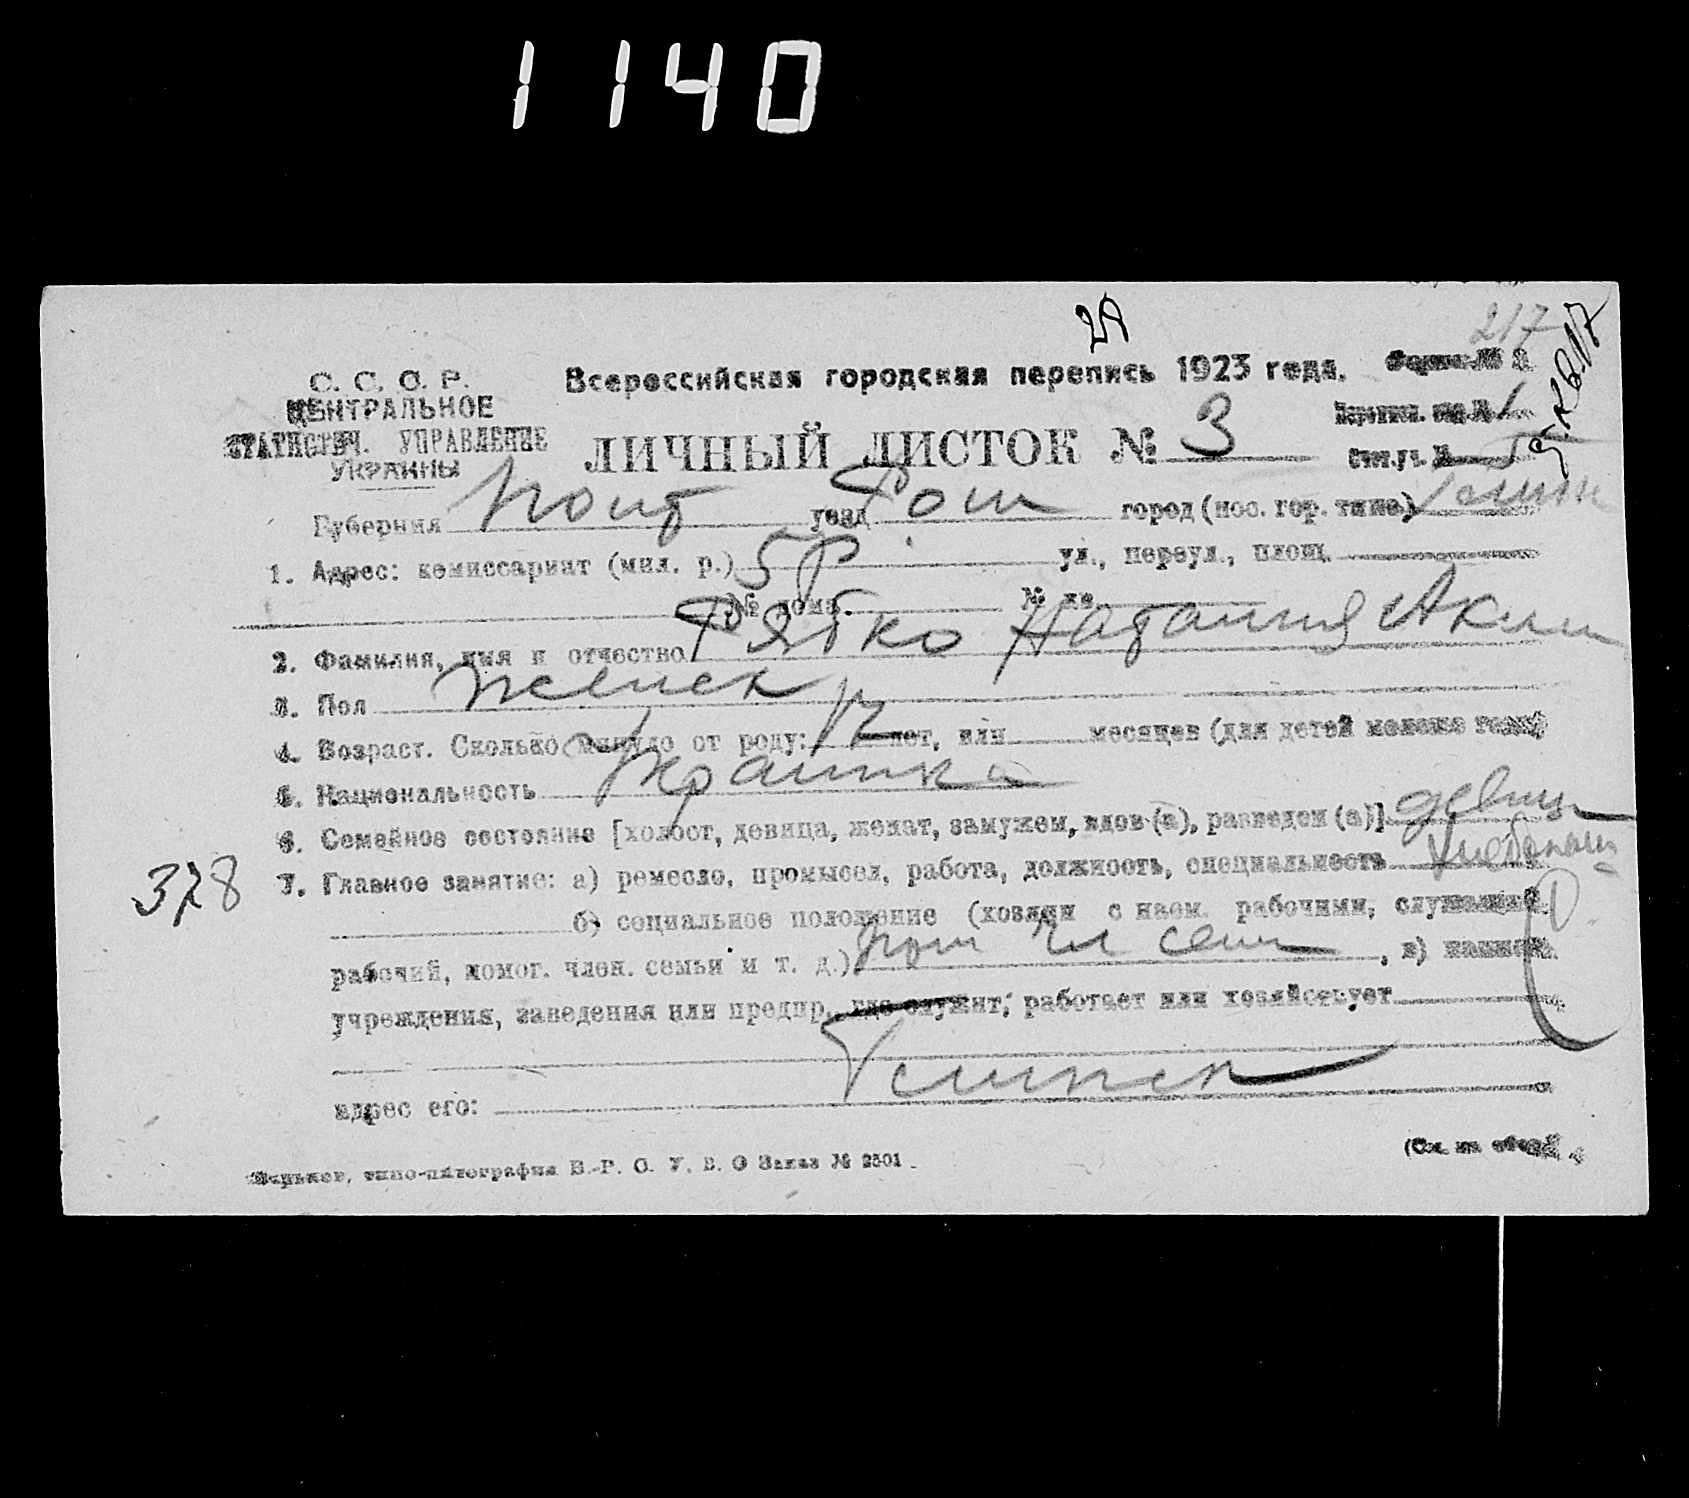 1140
217
С. С. С. Р.
ЦЕНТРАЛЬНОЕ
СТАТИСТИЧ. УПРАВЛЕНИЕ
УКРАИНЫ
Всероссийская городская перепись 1923 года.
ЛИЧНЫЙ ЛИСТОК № 3
Губерния Полт уезд Ром город (пос. гор. типа)
1. Адрес: комиссариат (мил. р.) 5 р ул., переул., площ.
№ дома. № кв.
2. Фамилия, имя и отчество Рябко Наталия Аким
3. Пол женск
4. Возраст. Сколько минуло от роду: 17 лет, или месяцев (для детей моложе года)
5. Национальность Украинка
6. Семейное состояние [холост, девица, женат, замужем, вдов (а), разведен (а)] девица
378
7. Главное занятие: а) ремесло, промысел, работа, должность, специальность
б) социальное положение (хозяин с наем. рабочими, служащий,
рабочий, помог. член. семьи и т. д.) пом чл сем , в) назван.
учреждения, заведения или предпр., где служит, работает или хозяйствует
адрес его:
Харьков, типо-литография В.-Р. О. У. В. О Заказ № 2501.
(См. на обор.)